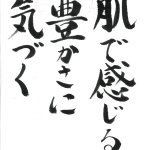 肌で感じる
豊かさに
気づく